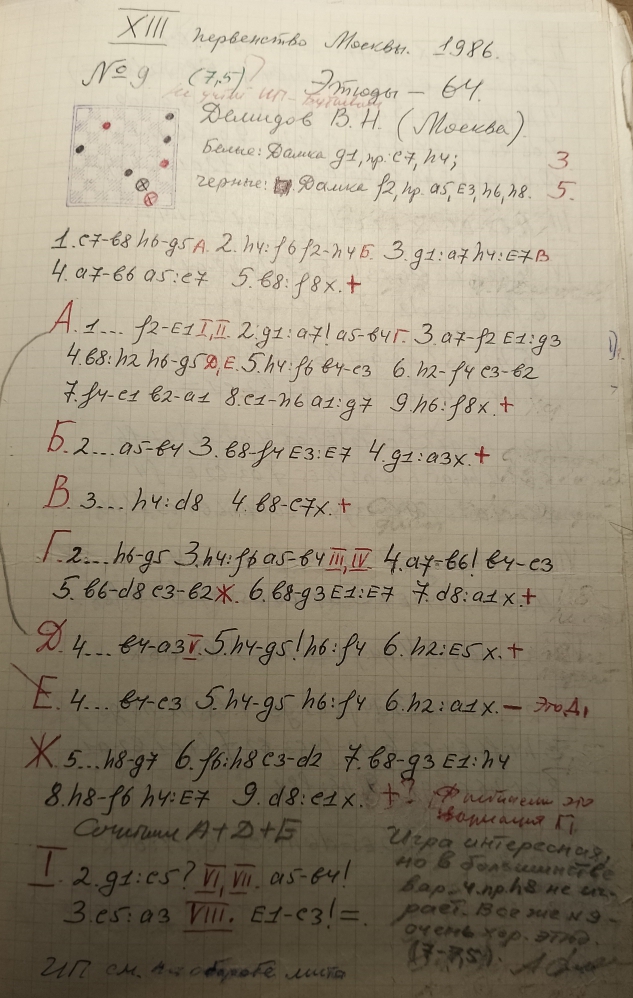 XIII первенство Москвы. 1986.
№ 9 (7,5)? Этюды – 64.
Демидов В.Н. (Москва).
Белые: Дамка g1, пр. c7, h4; 3
Черные: Дамка f2, пр. a5, E3, h6, h8. 5.
1. c7-b8 h6-g5 А. 2. h4:f6 f2-h4 Б. 3. g1:a7 h4:E7 В
4. a7-b6 a5:c7 5. b8:f8x.+
А. 1... f2-E1 I, II. 2. g1:a7! a5-b4 Г. 3. a7-f2 E1:g3
4. b8:h2 h6-g5 Д, Е. 5. h4:f6 b4-c3 6. h2-f4 c3-b2
7. f4-c1 b2-a1 8. c1-h6 a1:g7 9. h6:f8x.+
Б. 2... a5-b4 3. b8-f4 E3:E7 4. g1:a3x.+
В. 3... h4:d8 4. b8-c7x.+
Г. 2... h6-g5 3. h4:f6 a5-b4 III, IV. 4. a7-b6! b4-c3
5. b6-d8 c3-b2 Ж. 6. b8-g3 E1:E7 7. d8:a1x.+
Д. 4... b4-a3 V. 5. h4-g5! h6:f4 6. h2:E5x.+
Е. 4... b4-c3 5. h4-g5 h6:f4 6. h2:a1x.– это Д1
Ж. 5... h8-g7 6. f6:h8 c3-d2 7. b8-g3 E1:h4
8. h8-f6 h4:E7 9. d8:c1x. +?
это
вариация Г1
Сочтем А+Д+Е
Игра интересная,
но в большинстве
вар-в пр. h8 не иг-
рает. Все же на
очень хор. этюд.
(7-7,5).
I. 2. g1:c5? VI, VII. a5-b4!
3. c5:a3 VIII. E1-c3! =.
ИП см. на обороте листа